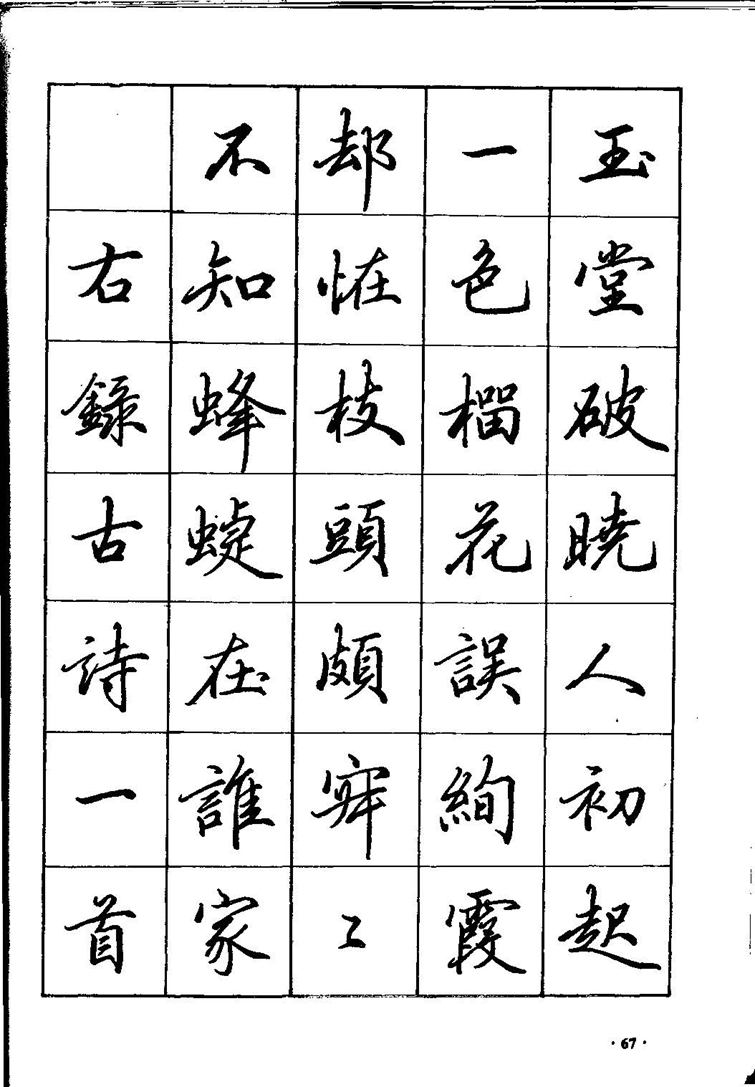 玉堂破曉人初起
一色榴花誤絢霞
却恠枝頭頗寂〻
不知蜂蝶在誰家
右錄古詩一首
·67·